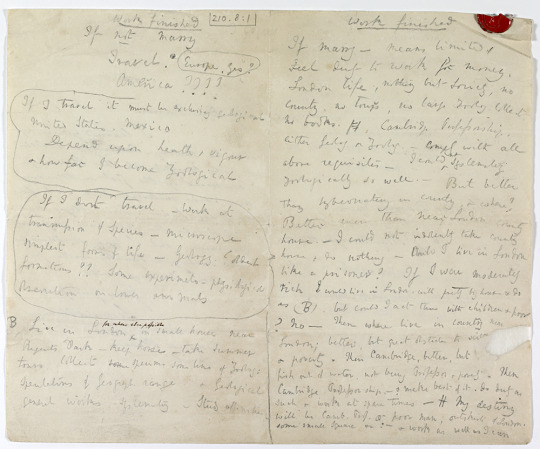 Work finished
210.8:1
If not marry
Travel. Europe, Yes?
America ????
If I travel it must be exclusively geological
United States, Mexico
Depend upon health & vigour
& how far I become Zoological
If I dont travel — Work at
transmission of Species — microscope
simplest forms of life — Geology. oldest
formations?? Some experiments — physiological
observation on lower animals
B Live in London for where else possible small house near
Regents Park — keep horse — take Summer
tours Collect specimens some line of Zoology:
Speculations of Geograph range & Geological
general works — Systematiz — Study affinities.
Work finished
If marry — means limited,
Feel duty to work for money.
London life, nothing but Society, no
country, no tours, no large Zoolog. Collect.
no books. Cambridge Professorship,
either Geolog. or Zoolog. — comply with all
above requisites — I could not systematiz
zoologically so well. — But better
than hybernating in country, & where?
Better even than near London country
house. — I could not indolently take country
house & do nothing — Could I live in London
like a prisoner? If I were moderately
rich I would live in London, with pretty big house & do
as (B), but could I act thus with children & poor
? No — Then where live in country near
London; better, but great obstacles to science
& poverty. Then Cambridge, better, but
fish out of water, not being Professor & poverty. Then
Cambridge Professorship, — & make best of it, do duty as
such & work at spare times — My destiny
will be Camb. Prof. or poor man; outskirts of London,
some small Square &c: — & work as well as I can